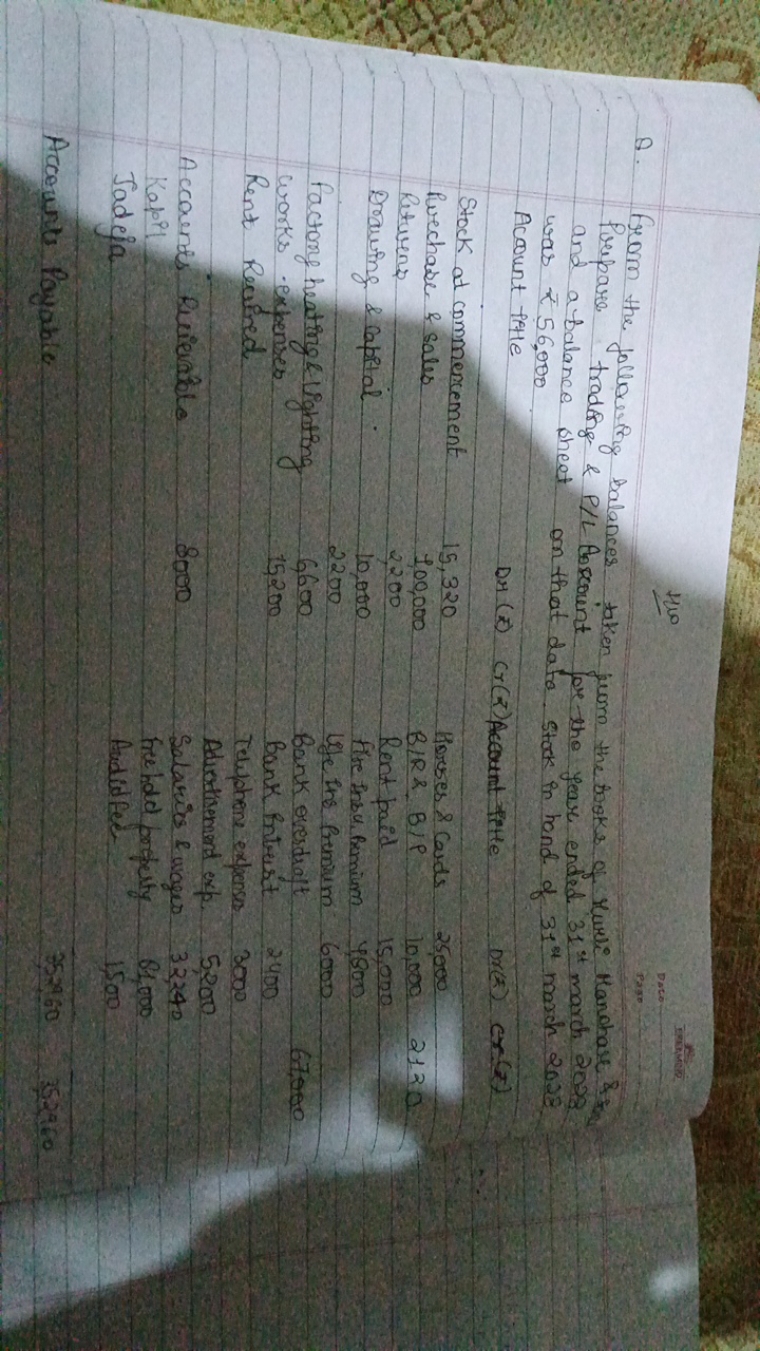 H/W
Date
Page
Q. From the following balances taken from the books of Murli Manohar &
Prepare trading & P/L Account for the year ended 31st march 2022
and a balance sheet on that data. Stock in hand of 31st march 2022
was ₹ 56,000
Account title Dr (₹) Cr(₹) Account title Dr(₹) Cr(₹)
Stock at commencement 15,320 Horses & Cards 25,000
Purchase & Sales 100,000 B/R & B/P 10,000 2120
Returns 2,200 Rent paid 15,000
Drawing & Capital 10,000 Fire Insu. Premium 4,800
2200 Life Ins Premium 6000
Factory heating & Lighting 6600 Bank overdraft 67,000
Works expenses 15,200 Bank Intrest 2400
Rent Reatred Telephone expenses 3000
Advertisement exp. 5,200
Accounts Reievable 8000 Salaries & wages 33290
Kapil Free hold property 81,000
Jadeja Audid fee 1500
Accounts Payable 352960 352960